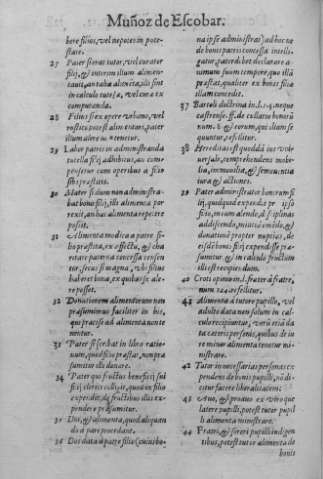 Muñoz de Escobar.
bere filios, vel nepotes in pote-
state.
25 Pater si erat tutor, vel curator
filij, & interim illum alimen-
tauit, an talia alimenta, illi sint
in calculo tutelæ, vel curæ ex
computanda.
28 Filius si ex opere
potest alimentari, pater
illum alere non tenetur.
29 Labor patris in administranda
tutella filij adhibitus, an com-
pensetur cum operibus a filio
sibi præstitis.
30 Mater si dum non administra-
bat bona filij, illi alimenta por
rexit, an has alimenta repetere
possit.
31 Alimenta modica a patre si-
lio præstita, ex effectu, & cha
ritate paterna concessa censen
tur, secus si magna, vbi filius
habet bona, ex quibus se ale-
re posset.
32 Donationem alimentorum non
præsumimus faciliter in his,
qui præcise ad alimenta non te
nentur.
33 Pater si scribat in libro ratio-
num, quod filio præstat, non præ
sumitur illi donare.
34 Pater qui fructus beneficij sui
filij clerici colligit, quod in filio
expendit, de fructibus illis ex-
pendere præsumitur.
35 Dos, & alimenta, quod aliquan
do à pari procedant.
36 Dos data à patre filiæ (cuius bo-
na ipse administrat) ad hoc ne
de bonis patris concessa intelli-
gatur, pater debet declarare a-
nimum suum tempore, quo illã
præstat, qualiter ex bonis filiæ
illam concedit.
37 Bartoli doctrina in .l. 1. §. neque
castrense. ff. de collatione bonorũ
num. & eorum, qui illum se
quuntur, refellitur.
38 Hereditas est quoddã ius vni-
uersale, comprehendens mobi-
lia, immobilia, & semouentia
iura & actiones.
39 Pater administrator bonorum fi
lij, quidquid expendit pro ipso
filio, in eum alendo, & disciplinas
addiscendo, militiã emendo, &
donationes propter nuptias, de
eisdẽ bonis filij expendisse præ-
sumitur, & in calculo fructuum
illi est recipiendum.
40 Croti opinio in .l. frater à fratre,
num. 124. refellitur.
41 Alimenta à tutore pupillo, vel
adulto data non solum in cal-
culo recipiuntur, verũ etiã da
ta cæteris personis, quibus de iu
re minor alimenta tenetur mi-
nistrare.
42 Tutor in necessarias personas ex
pendens de bonis pupilli, nõ di-
citur facere liberalitatem.
43 Auo, & proauo ex vtroque
latere pupilli, potest tutor pupil
li alimenta ministrare.
44 Fratri, & sorori pupilli indigen
tibus, potest tutor alimenta de
bonis